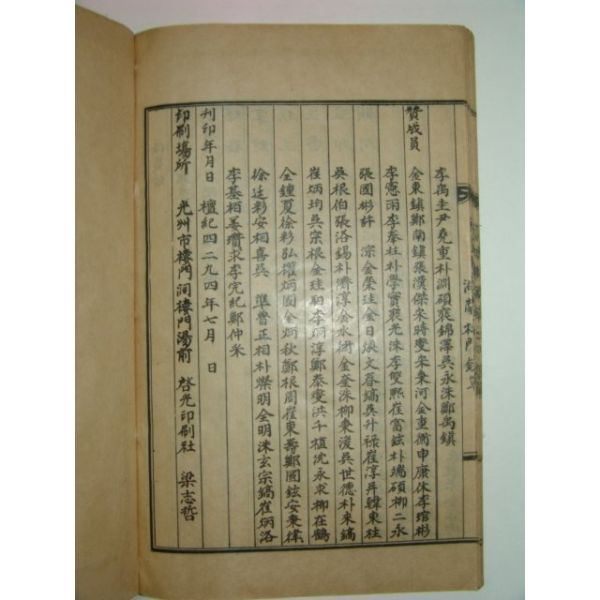 李禹圭尹堯重朴淵碩裵錦澤吳永洙鄭禹鎭
贊成員
金東鎭鄭蘭鎭張漢傑宋時燮宋秉河金重衡申康休李琯彬
李憲雨李奉柱朴學實裵光洙李雙熙崔富鉉朴瑞碩柳二永
張圖彬許 宗金榮珪金日煥文暮鎬吳升祿崔淳昇韓東柱
吳根伯張洛錫朴濟淳金永衡金奎洙柳秉浚吳世德朴來鎬
崔炳均吳宗根金珪 李炯淳鄭泰燮洪千植沈永求柳在鶴
全鍾夏徐彩弘 炳圖金炳秋鄭根周崔東壽鄭國鉉安秉律
徐廷彩安相喜吳 曺正相朴榮明全明洙玄宗鎬崔炳洛
李基相 求李完紀鄭仲采
刊印年月日 檀紀四二九四年七月 日
印刷場所 光州市樓門洞樓門湯前 啓光印刷社 梁志哲